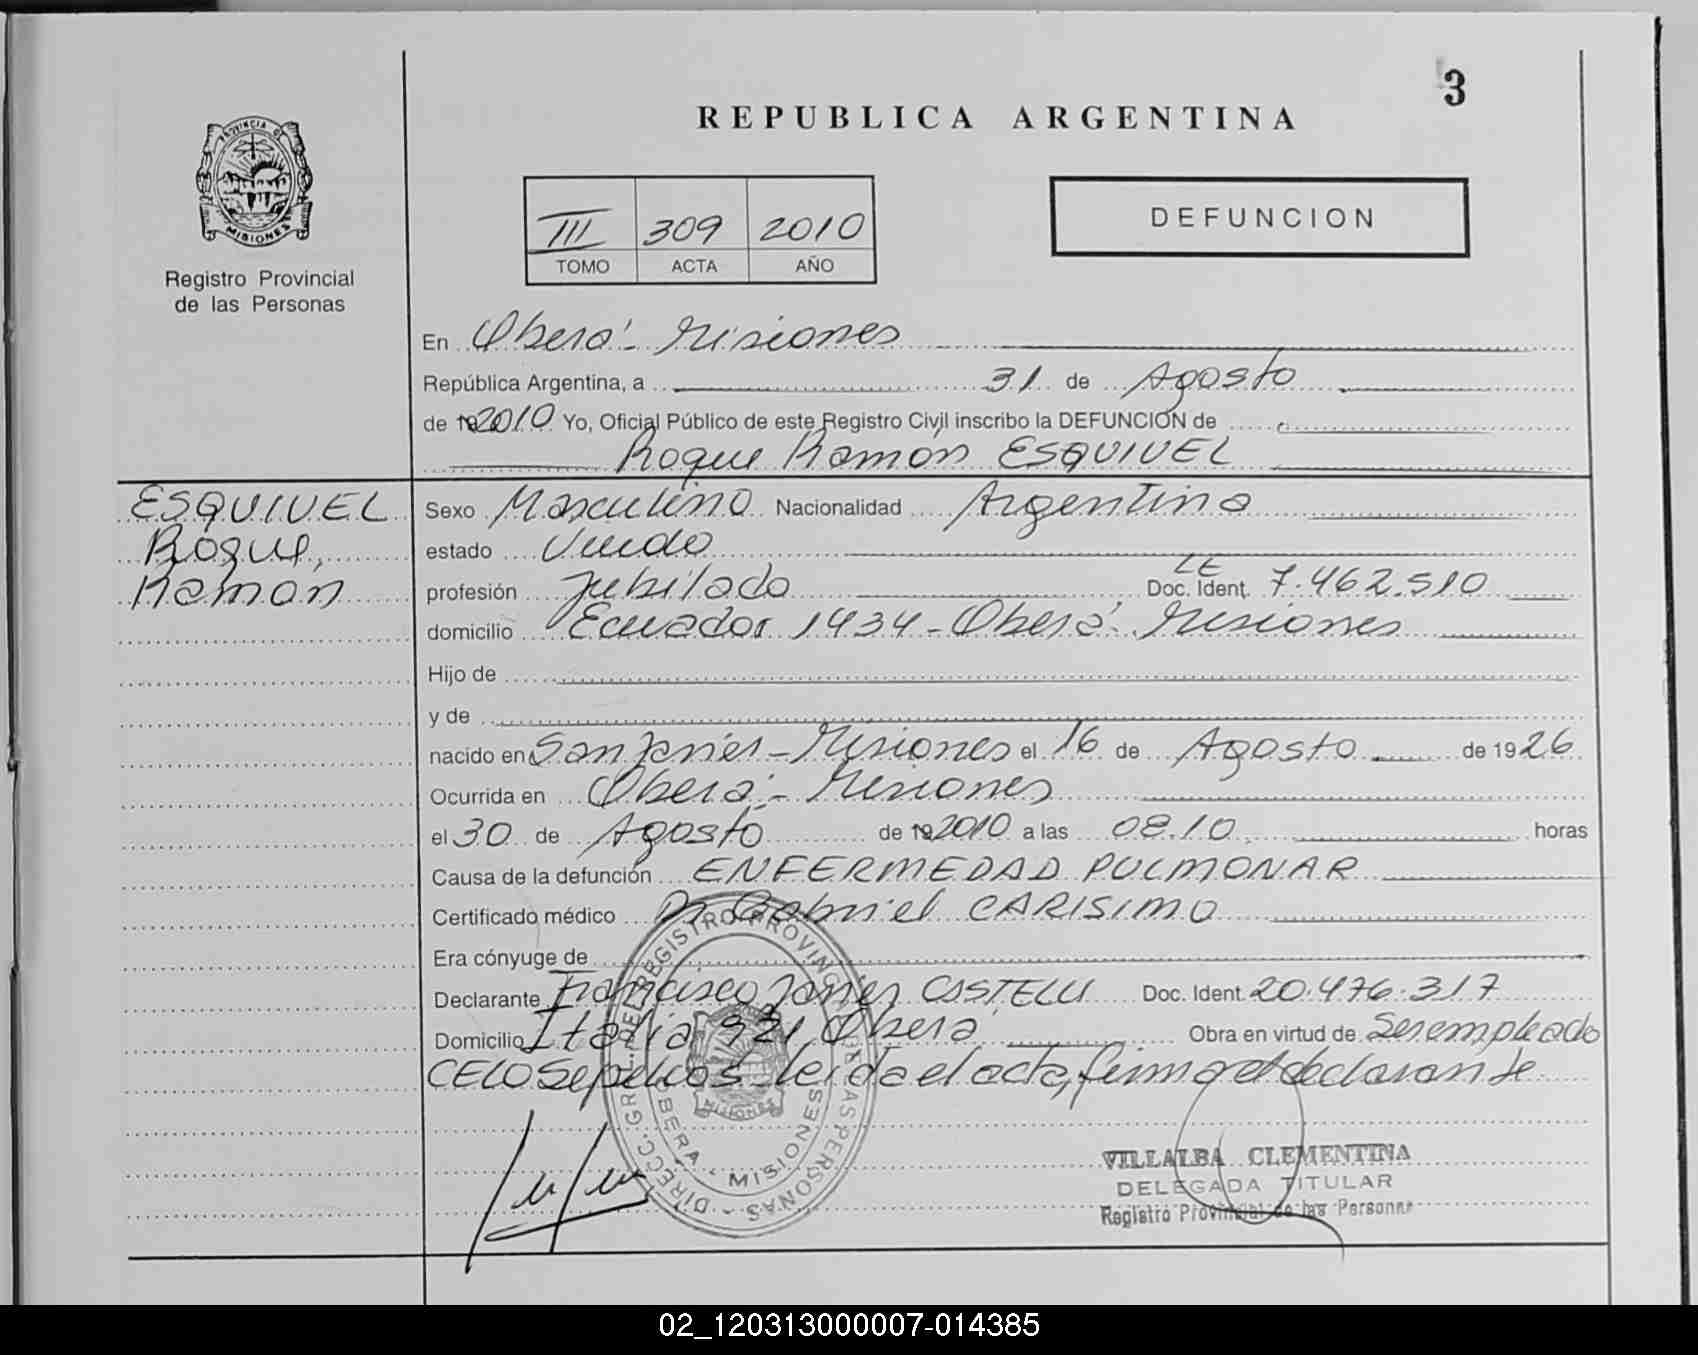 3
REPUBLICA ARGENTINA
PROVINCIA DE
MISIONES
Registro Provincial
de las Personas
III 309 2010
TOMO ACTA AÑO
DEFUNCION
En Oberá - Misiones
República Argentina, a 31 de Agosto
de 192010 Yo, Oficial Público de este Registro Civil inscribo la DEFUNCION de
Roque Ramón ESQUIVEL
ESQUIVEL
Roque,
Ramón
Sexo Masculino Nacionalidad Argentina
estado Viudo
LE
profesión Jubilado Doc. Ident. 7.462.510
domicilio Ecuador 1434 - Oberá - Misiones
Hijo de
y de
nacido en San Javier - Misiones el 16 de Agosto de 1926
Ocurrida en Oberá - Misiones
el 30 de Agosto de 192010 a las 08.10 horas
Causa de la defunción ENFERMEDAD PULMONAR
Certificado médico Dr Gabriel CARISIMO
Era cónyuge de
Declarante Francisco Javier CASTELLI Doc. Ident. 20.476.317
Domicilio Italia 921 Oberá Obra en virtud de Ser empleado
CELO Sepelios Leida el acta, firma el declarante
DIRECC. GRAL. DEL REGISTRO PROVINCIAL DE LAS PERSONAS -
OBERA - MISIONES
MISIONES
VILLALBA CLEMENTINA
DELEGADA TITULAR
Registro Provincial de las Personas
02_120313000007-014385